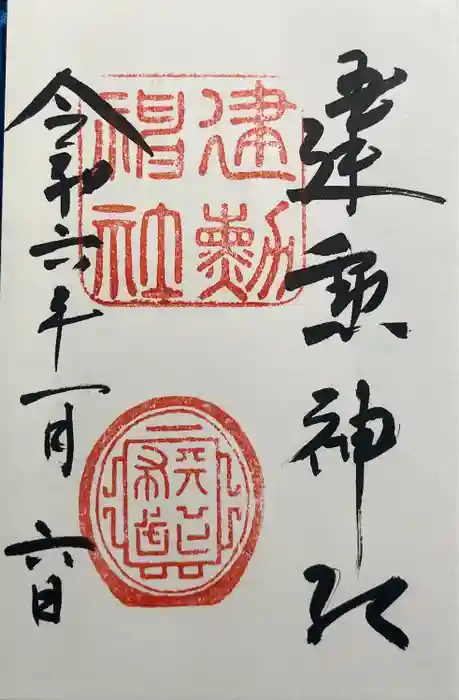 建勲神社
建勲
神社
天下
布武
令和六年一月六日